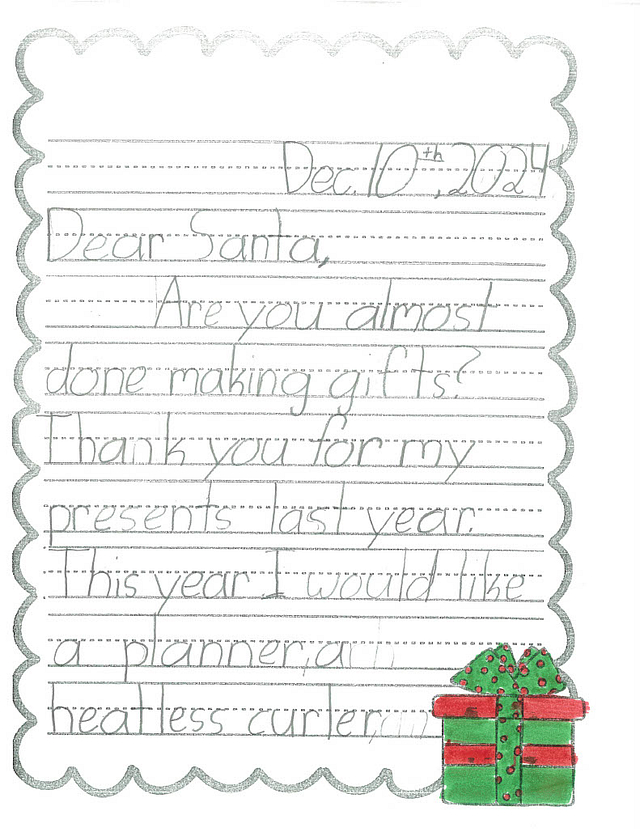 Dec. 10th, 2024
Dear Santa,
Are you almost
done making gifts?
Thank you for my
presents last year.
This year I would like
a planner, a
heatless curler,